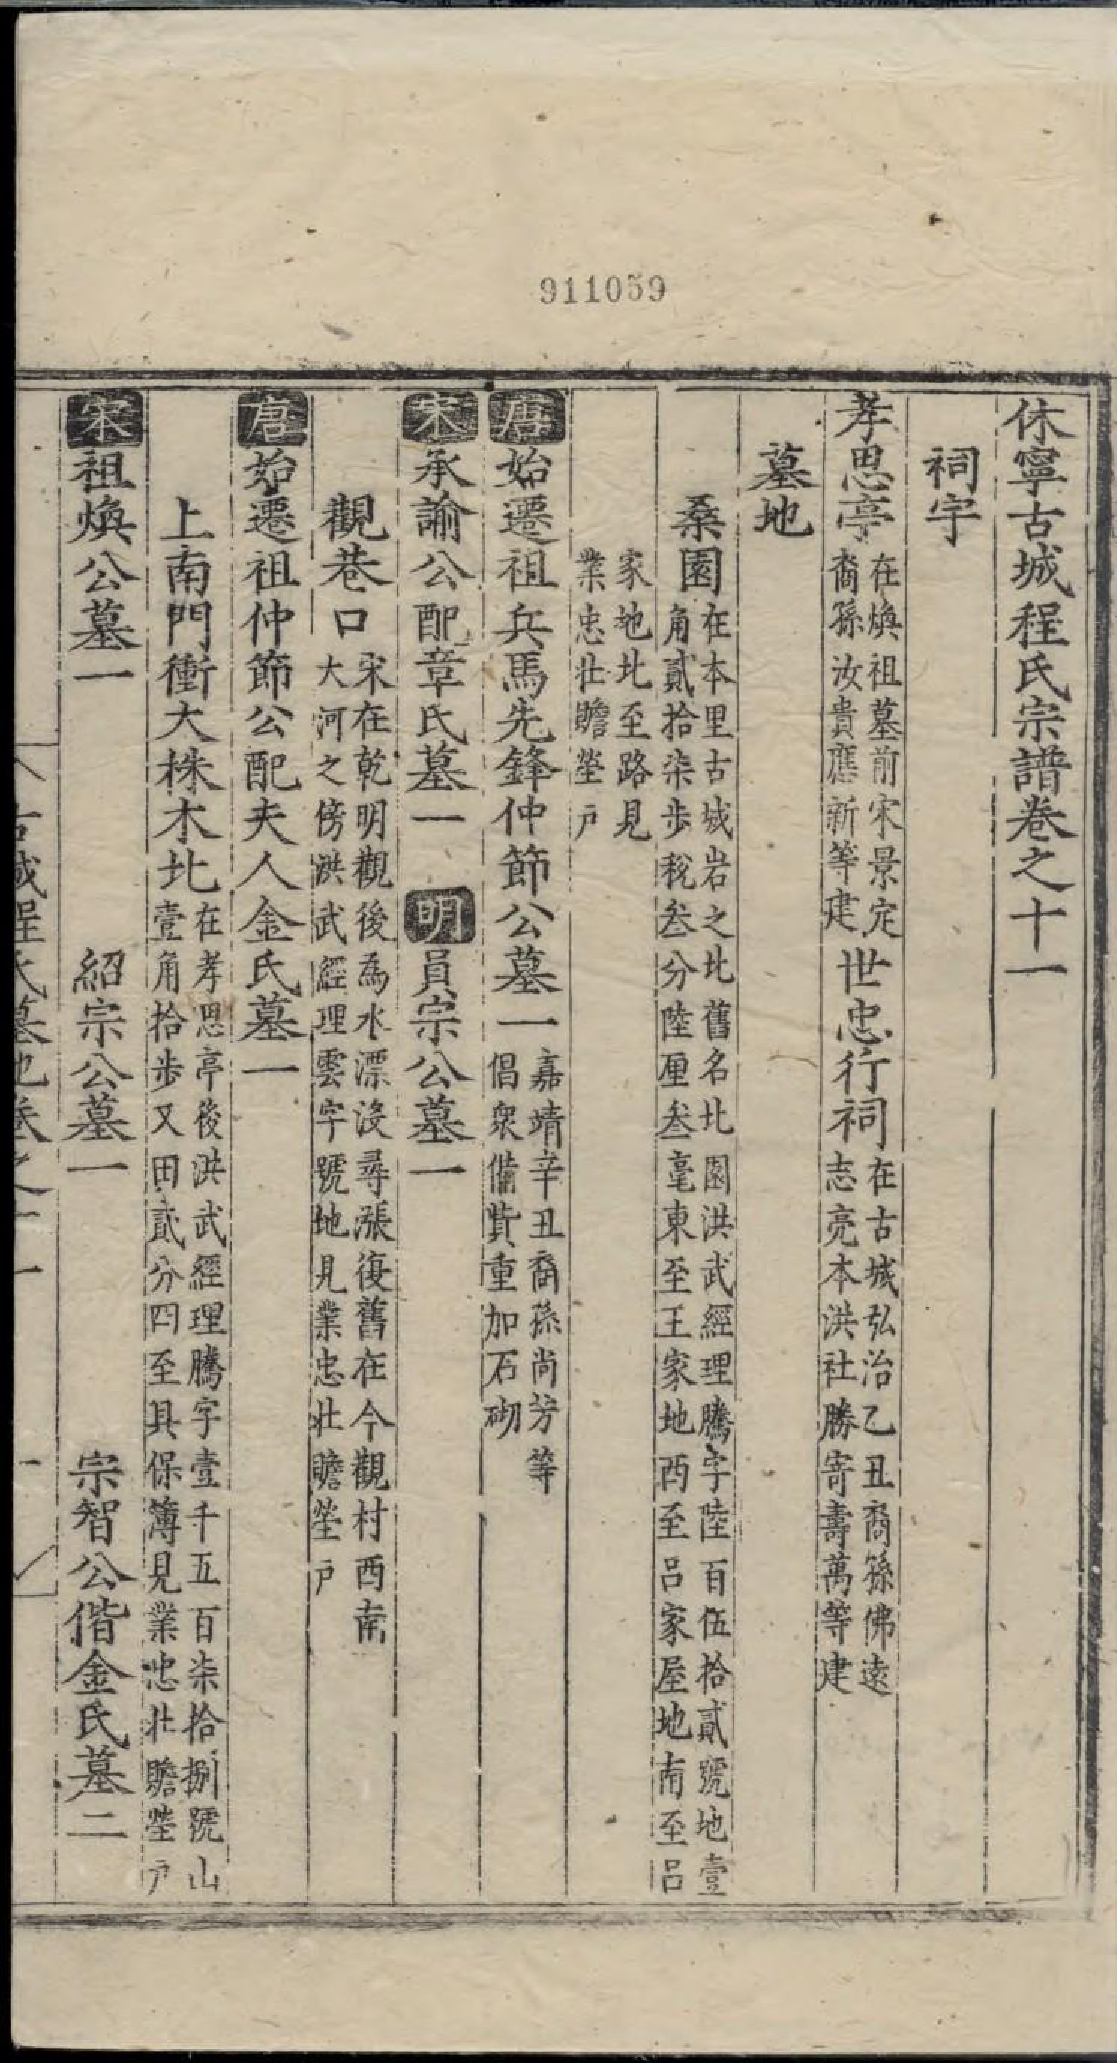 911059
休寧古城程氏宗譜卷之十一
祠宇
孝思亭
在煥祖墓前宋景定
裔孫汝貴應新等建
世忠行祠
在古城弘治乙丑裔孫佛遠
志亮本洪社勝寄壽萬等建
墓地
桑園
在本里古城岩之北舊名北園洪武經理騰字陸百伍拾貳號地壹
角貳拾柒步稅叁分陸厘叁毫東至王家地西至呂家屋地南至呂
家地北至路見
業忠壯贍塋戶
唐始遷祖兵馬先鋒仲節公墓一
嘉靖辛丑裔孫尚芳等
倡衆備貲重加石砌
宋承諭公配章氏墓一 明員宗公墓一
觀巷口
宋在乾明觀後為水漂沒尋漲復舊在今觀村西南
大河之傍洪武經理雲字號地見業忠壯贍塋戶
唐始遷祖仲節公配夫人金氏墓一
上南門衝大株木北
在孝思亭後洪武經理騰字壹千五百柒拾捌號山
壹角拾步又田貳分四至具保簿見業忠壯贍塋戶
宋祖煥公墓一 紹宗公墓一 宗智公偕金氏墓二
古城程氏墓地卷之十一